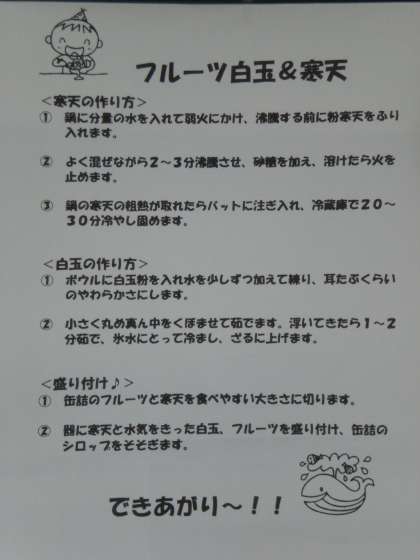 フルーツ白玉＆寒天
＜寒天の作り方＞
① 鍋に分量の水を入れて弱火にかけ、沸騰する前に粉寒天をふり
入れます。
② よく混ぜながら２～３分沸騰させ、砂糖を加え、溶けたら火を
止めます。
③ 鍋の寒天の粗熱が取れたらバットに注ぎ入れ、冷蔵庫で２０～
３０分冷やし固めます。
＜白玉の作り方＞
① ボウルに白玉粉を入れ水を少しずつ加えて練り、耳たぶくらい
のやわらかさにします。
② 小さく丸め真ん中をくぼませて茹でます。浮いてきたら１～２
分茹で、氷水にとって冷まし、ざるに上げます。
＜盛り付け♪＞
① 缶詰のフルーツと寒天を食べやすい大きさに切ります。
② 器に寒天と水気をきった白玉、フルーツを盛り付け、缶詰の
シロップをそそぎます。
できあがり～！！